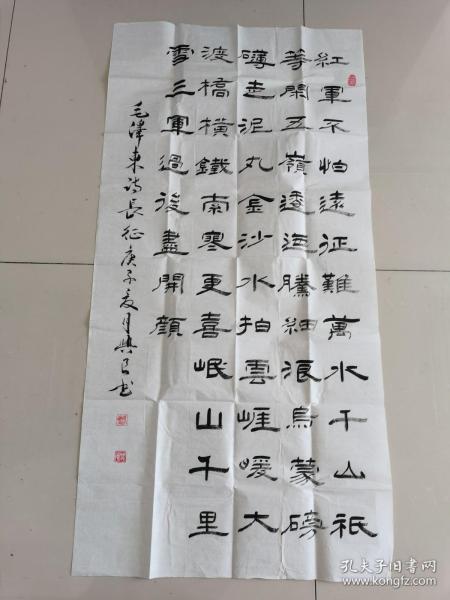 紅軍不怕遠征難萬水千山祇
等閑五嶺逶迤騰細浪烏蒙磅
礴走泥丸金沙水拍雲崖暖大
渡橋橫鐵索寒更喜岷山千里
雪三軍過後盡開顏
毛澤東詩長征庚子夏月書
孔夫子旧书网
www.kongfz.com